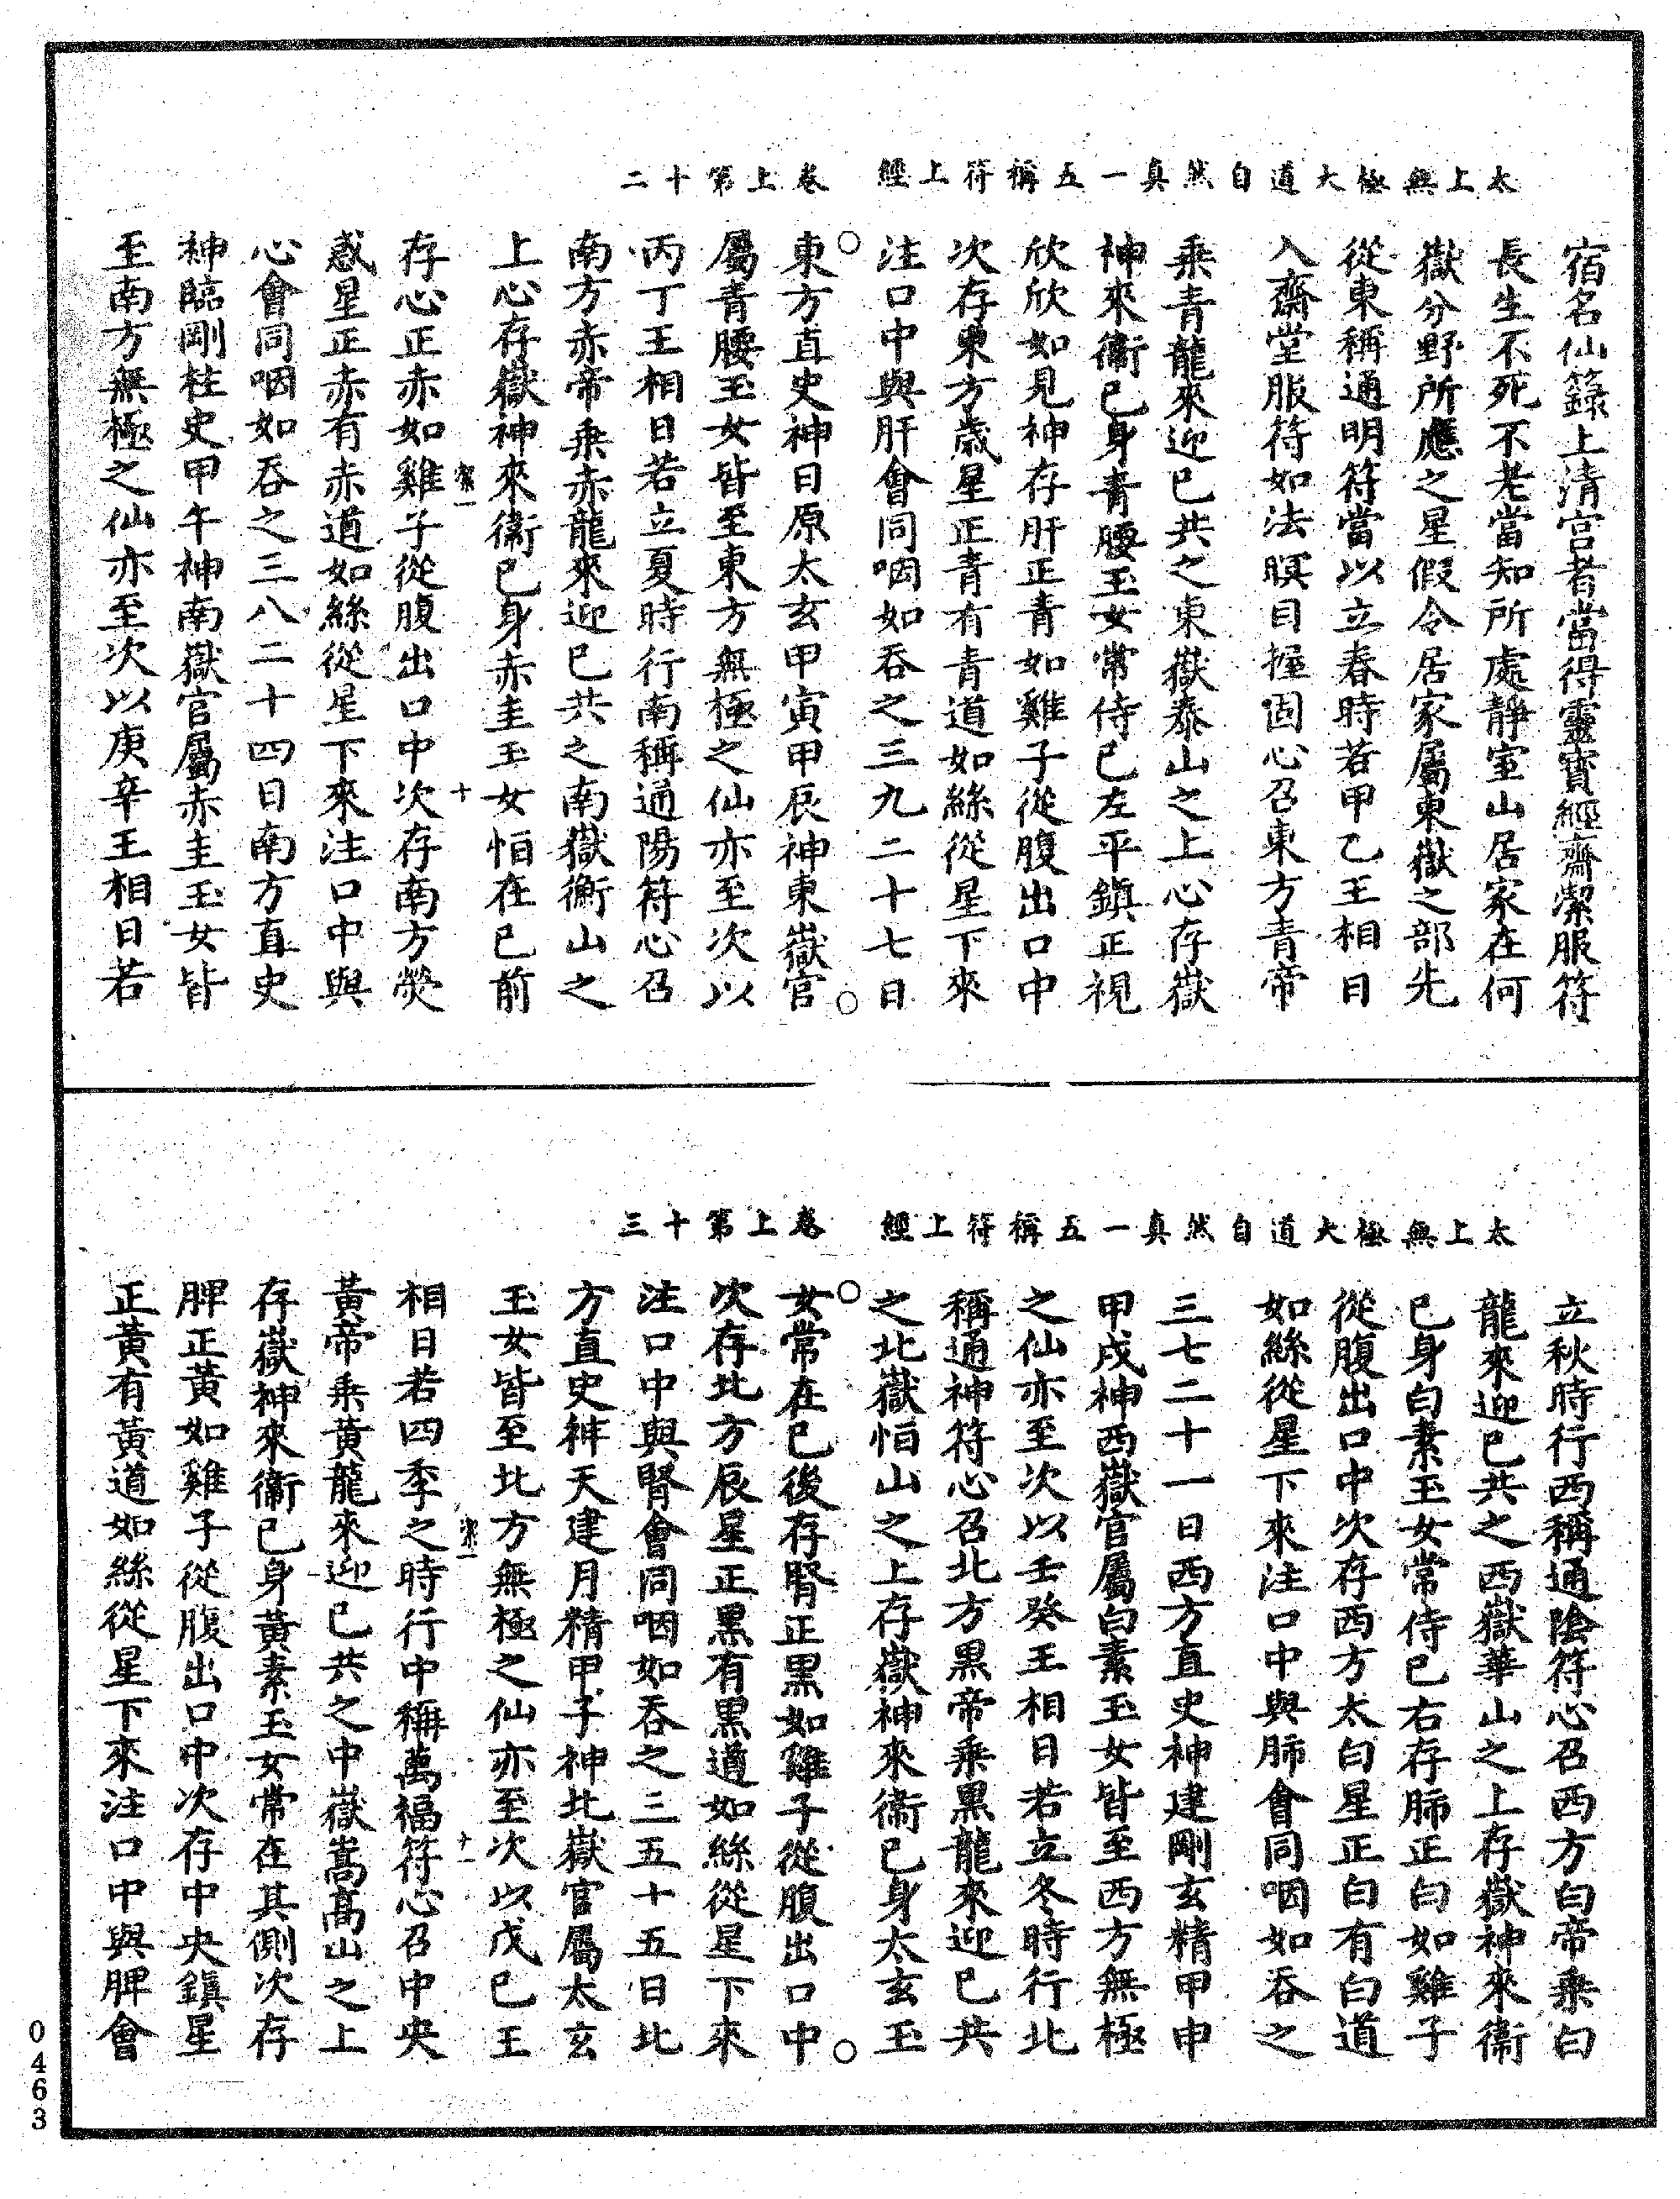 太上無極大道自然真一五稱符上經 卷上第十二
宿名仙籙上清宮者當得靈寶經齋潔服符
長生不死不老當知所處靜室山居家在何
嶽分野所應之星假令居家屬東嶽之部先
從東稱通明符當以立春時若甲乙王相日
入齋堂服符如法暝目握固心召東方青帝
乘青龍來迎已共之東嶽泰山之上心存嶽
神來衞已身青腰玉女常侍已左平鎮正視
欣欣如見神存肝正青如雞子從腹出口中
次存東方歲星正青有青道如絲從星下來
注口中與肝會同咽如吞之三九二十七日
東方直史神日原太玄甲寅甲辰神東嶽官
屬青腰玉女皆至東方無極之仙亦至次以
丙丁王相日若立夏時行南稱通陽符心召
南方赤帝乘赤龍來迎已共之南嶽衡山之
上心存嶽神來衞已身赤圭玉女怕在已前
潔一 十
存心正赤如雞子從腹出口中次存南方熒
惑星正赤有赤道如絲從星下來注口中與
心會同咽如吞之三八二十四日南方直史
神臨剛柱史甲午神南嶽官屬赤圭玉女皆
至南方無極之仙亦至次以庚辛王相日若
太上無極大道自然真一五稱符上經 卷上第十三
立秋時行西稱通陰符心召西方白帝乘白
龍來迎已共之西嶽華山之上存嶽神來衞
已身白素玉女常侍已右存肺正白如雞子
從腹出口中次存西方太白星正白有白道
如絲從星下來注口中與肺會同咽如吞之
三七二十一日西方直史神建剛玄精甲申
甲戌神西嶽官屬白素玉女皆至西方無極
之仙亦至次以壬癸王相日若立冬時行北
稱通神符心召北方黑帝乘黑龍來迎已共
之北嶽怕山之上存嶽神來衞已身太玄玉
女常在已後存腎正黑如雞子從腹出口中
次存北方辰星正黑有黑道如絲從星下來
注口中與腎會同咽如吞之三五十五日北
方直史神天建月精甲子神北嶽官屬太玄
玉女皆至北方無極之仙亦至次以戊已王
相日若四季之時行中稱萬福符心召中央
潔一 十一
黃帝乘黃龍來迎已共之中嶽嵩高山之上
存嶽神來衞已身黃素玉女常在其側次存
脾正黃如雞子從腹出口中次存中央鎮星
正黃有黃道如絲從星下來注口中與脾會
0463